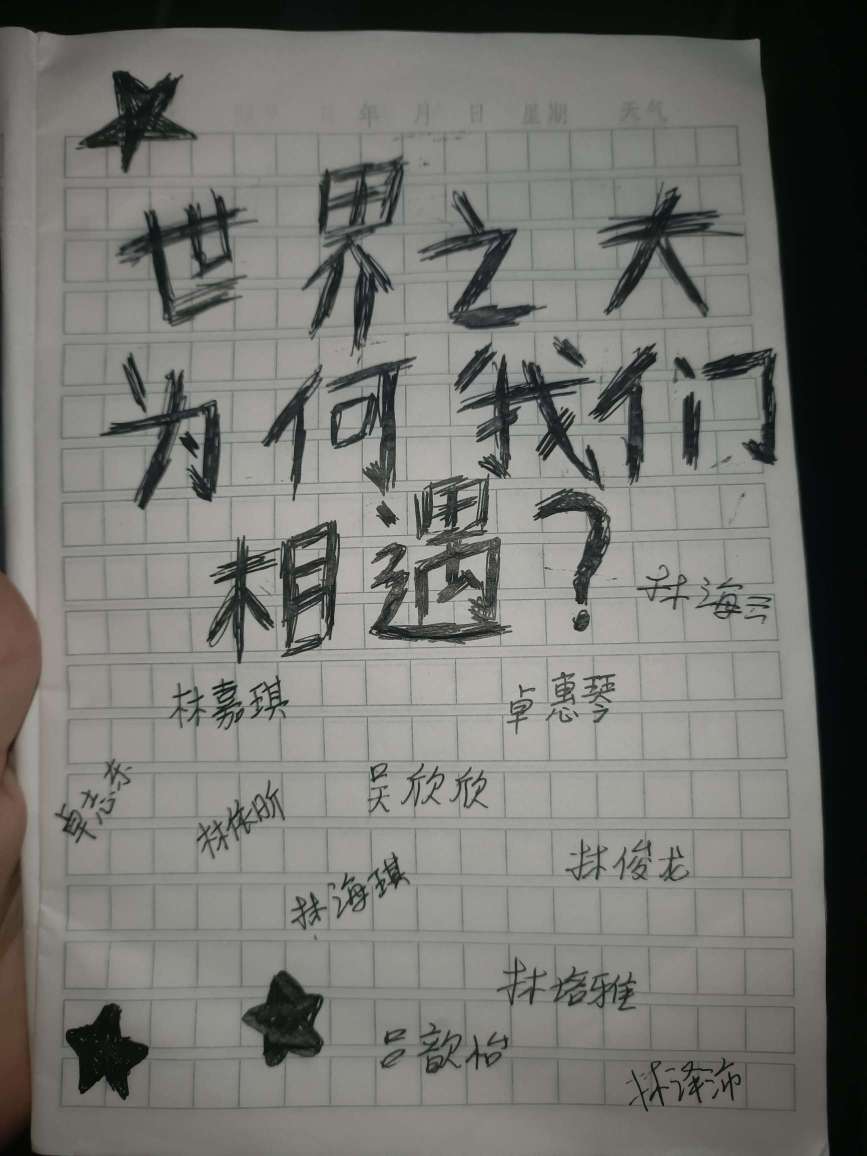 年 月 日 星期 天气
世界之大
为何我们
相遇?
林海云
林嘉琪
卓惠琴
卓志东
林依昕
吴欣欣
林俊龙
林海琪
林培雅
吕歆怡
林泽沛